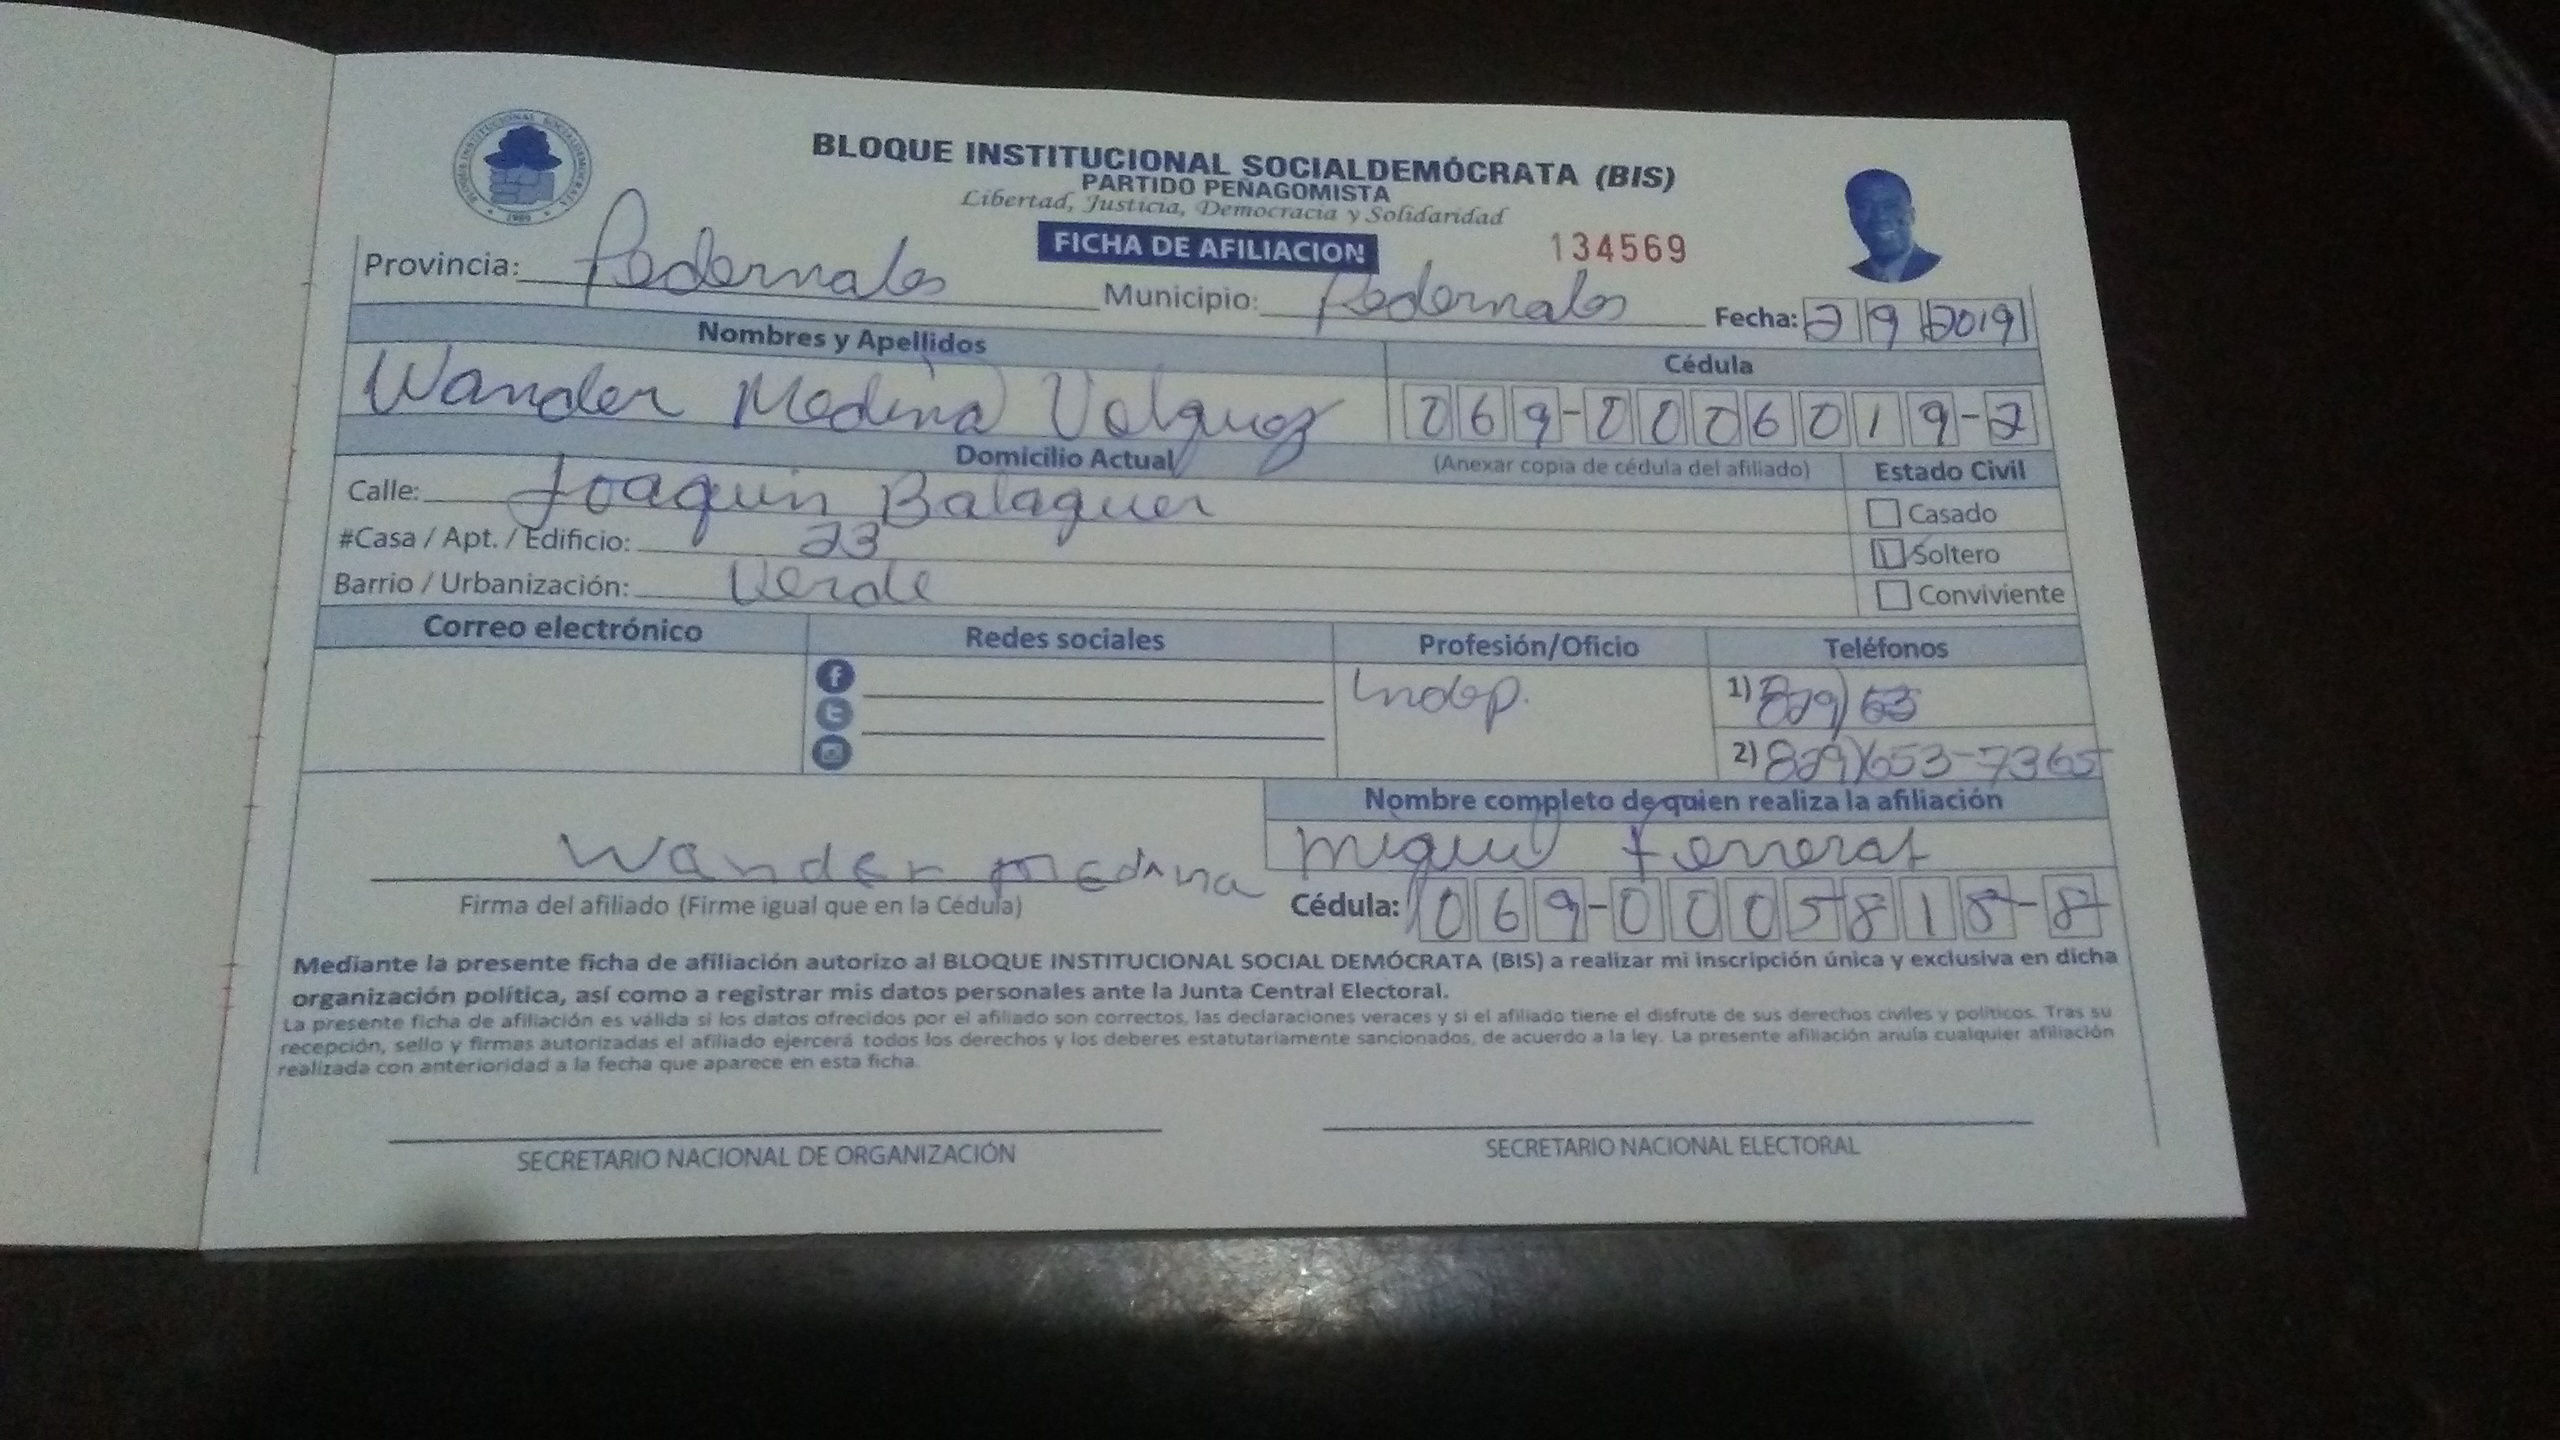 BLOQUE INSTITUCIONAL SOCIALDEMÓCRATA
1989
BLOQUE INSTITUCIONAL SOCIALDEMÓCRATA (BIS)
PARTIDO PEÑAGOMISTA
Libertad, Justicia, Democracia y Solidaridad
FICHA DE AFILIACION 134569
Provincia: Pedernales Municipio: Pedernales Fecha: 2 9 2019
Nombres y Apellidos Cédula
Wander Medina 069-0006019-2
Domicilio Actual (Anexar copia de cédula del afiliado) Estado Civil
Calle: Joaquin Balaguer Casado
#Casa / Apt. / Edificio: 23 Soltero
Barrio / Urbanización: Verde Conviviente
Correo electrónico Redes sociales Profesión/Oficio Teléfonos
Indep. 1) 829) 63
2) 829)653-7365
Nombre completo de quien realiza la afiliación
Wander medina Miguel Ferreras
Firma del afiliado (Firme igual que en la Cédula) Cédula: 069-0005818-8
Mediante la presente ficha de afiliación autorizo al BLOQUE INSTITUCIONAL SOCIAL DEMÓCRATA (BIS) a realizar mi inscripción única y exclusiva en dicha
organización política, así como a registrar mis datos personales ante la Junta Central Electoral.
La presente ficha de afiliación es válida si los datos ofrecidos por el afiliado son correctos, las declaraciones veraces y si el afiliado tiene el disfrute de sus derechos civiles y políticos. Tras su
recepción, sello y firmas autorizadas el afiliado ejercerá todos los derechos y los deberes estatutariamente sancionados, de acuerdo a la ley. La presente afiliación anula cualquier afiliación
realizada con anterioridad a la fecha que aparece en esta ficha.
SECRETARIO NACIONAL DE ORGANIZACIÓN SECRETARIO NACIONAL ELECTORAL